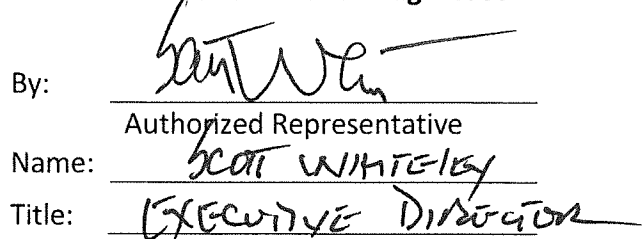 By: Scott Whit
Authorized Representative
Name: SCOTT WHITELEY
Title: EXECUTIVE DIRECTOR